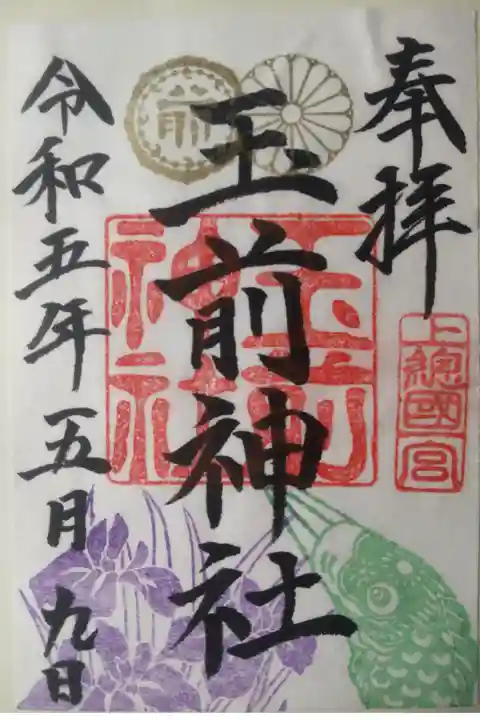 奉拝
上總國一宮
玉前神社
玉前
神社
前
令和五年五月九日